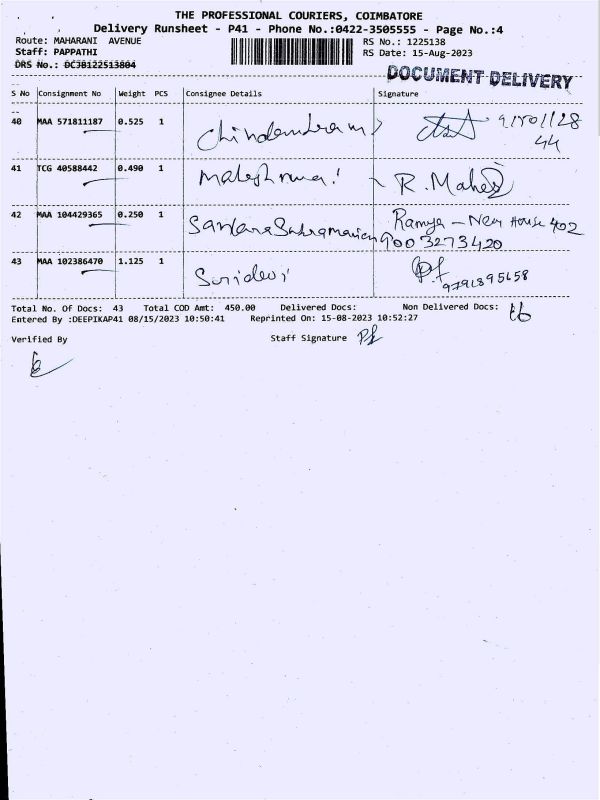 THE PROFESSIONAL COURIERS, COIMBATORE
Delivery Runsheet - P41 - Phone No.:0422-3505555 - Page No.:4
Route: MAHARANI AVENUE RS No.: 1225138
Staff: PAPPATHI RS Date: 15-Aug-2023
DRS No.: DCJB122513804
DOCUMENT DELIVERY
S No Consignment No Weight PCS Consignee Details Signature
40 MAA 571811187 0.525 1
41 TCG 40588442 0.490 1 R. Mahes
42 MAA 104429365 0.250 1 Ramya - New House 402
9003273420
43 MAA 102386470 1.125 1 Sridevi
9791895658
Total No. Of Docs: 43 Total COD Amt: 450.00 Delivered Docs: Non Delivered Docs:
Entered By :DEEPIKAP41 08/15/2023 10:50:41 Reprinted On: 15-08-2023 10:52:27
Verified By Staff Signature